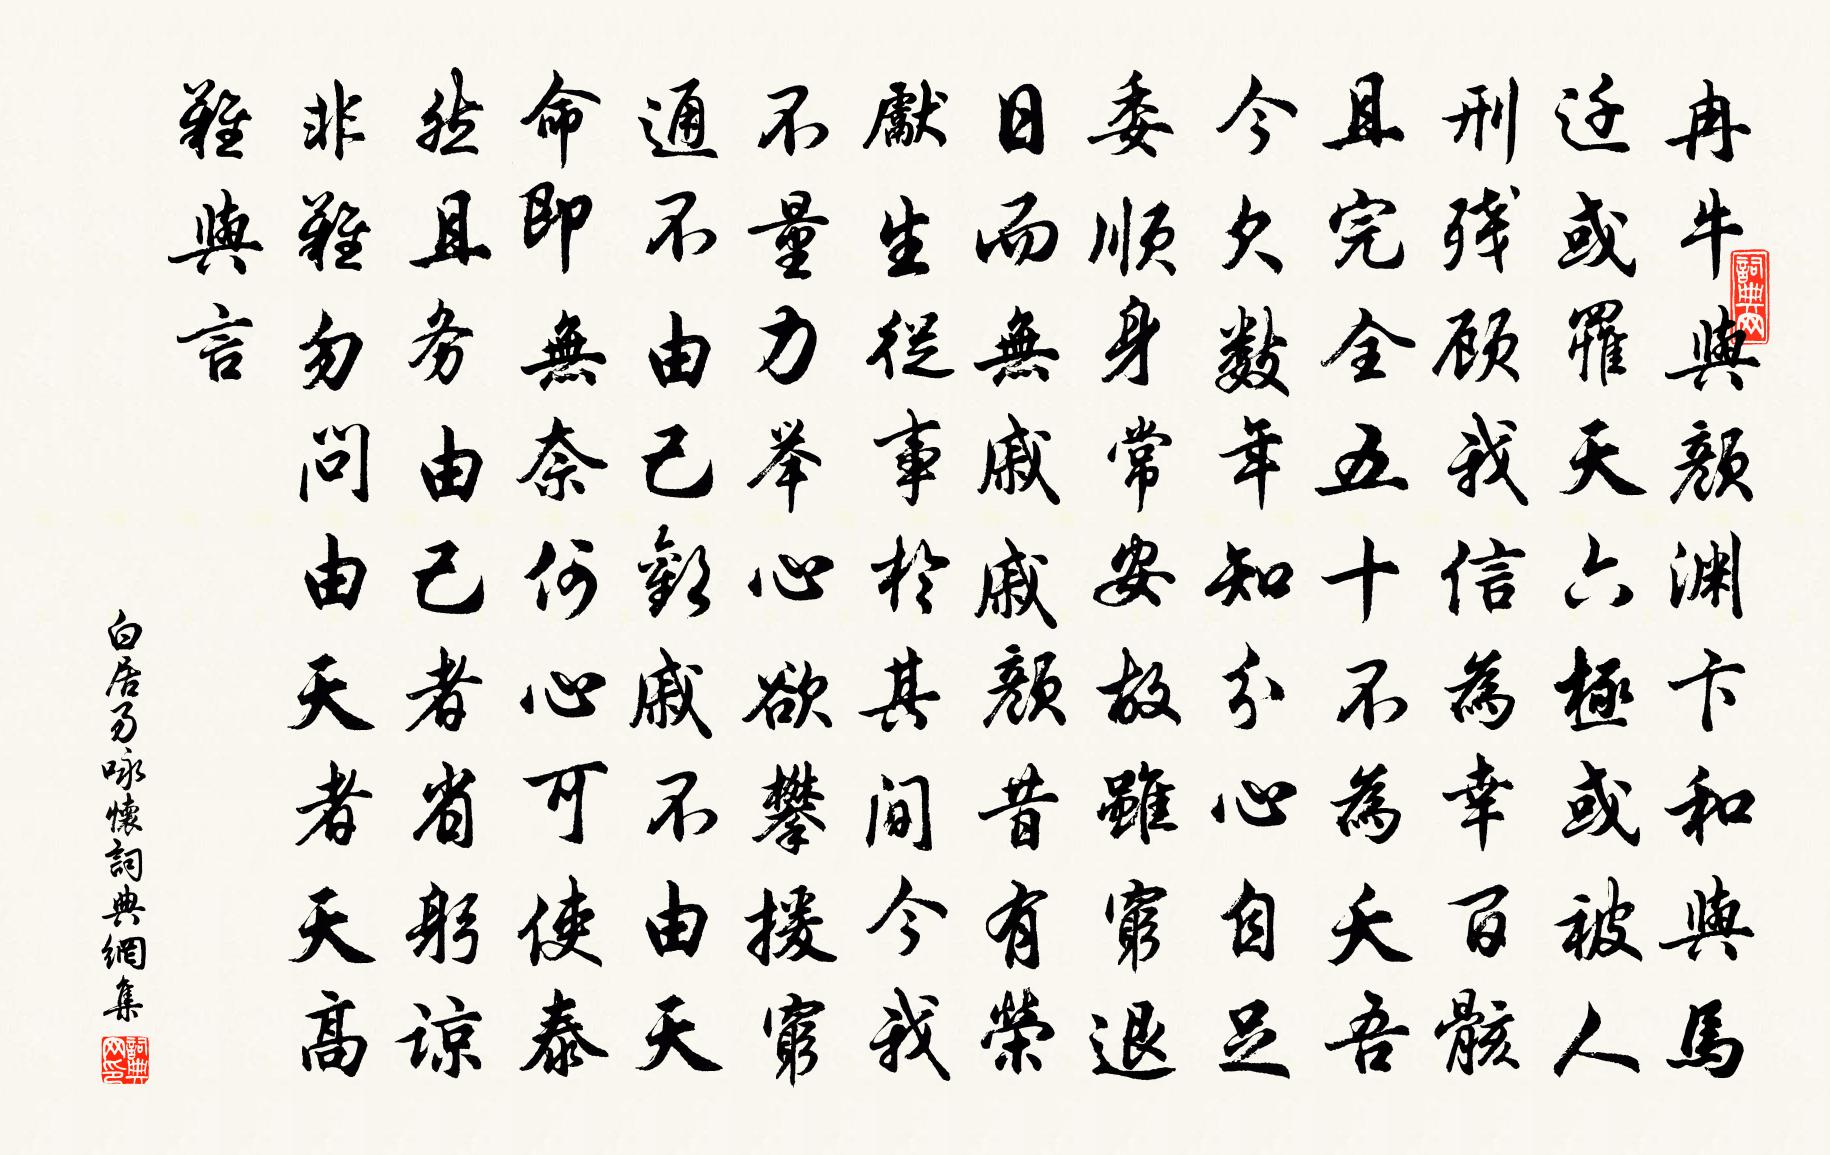 冉牛與顔渊卞和與馬
迁或罹天六極或被人
刑残顾我信為幸百骸
且完全五十不為夭吾
今欠數年知分心自足
委順身常安故雖窮退
日而無戚戚顔昔有榮
獻生從事於其間今我
不量力举心欲攀援窮
通不由己歡戚不由天
命即無奈何心可使泰
然且务由己者省躬谅
非難勿問由天者天高
難與言
白居易咏懷詞典網集
詞典网
詞典网印